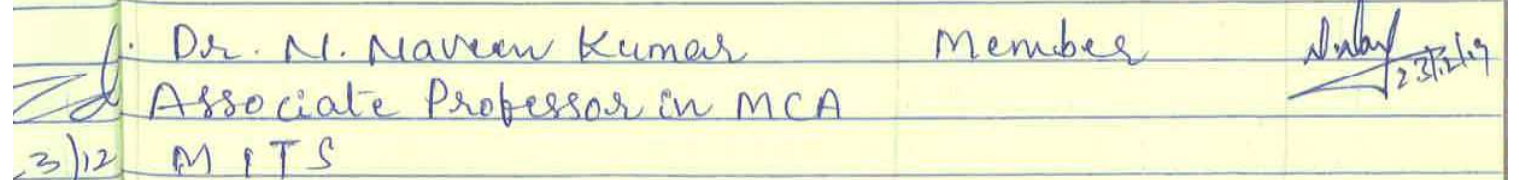 Dr. N. Naveen Kumar Member
23/12/19
Associate Professor in MCA
3/12 MITS